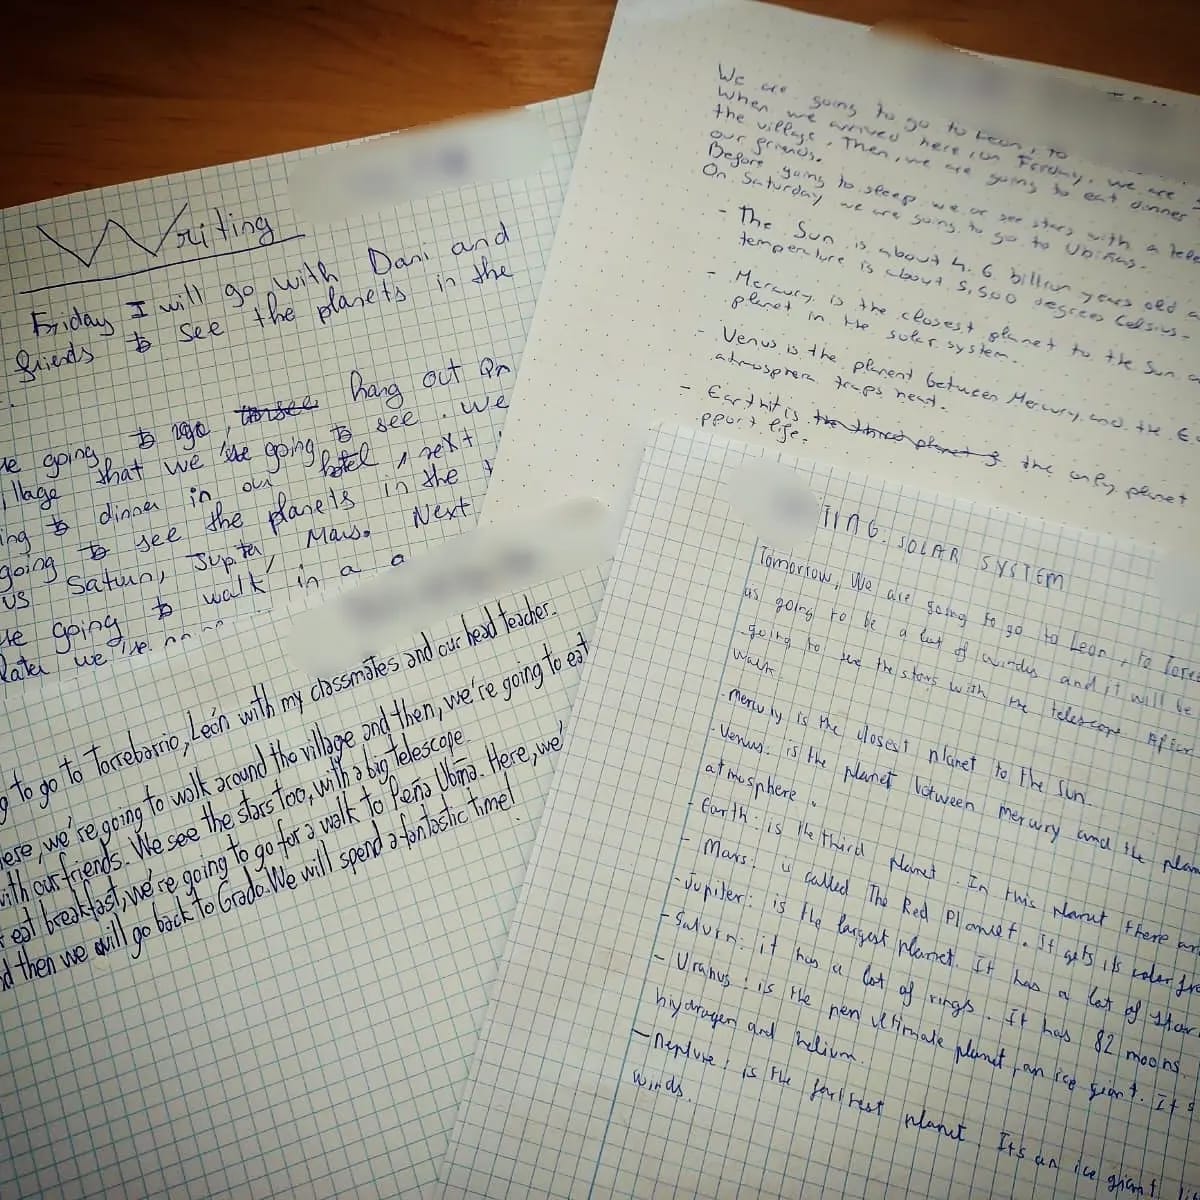 Writing
Friday I will go with Dani and
friends to see the planets in the
going to go, hang out on
village that we 're going to see. We
ing to dinner in our hotel, next
going to see the planets in the
us Saturn, Jupter, Mars. Next
going to walk in a a
later we 're
We are going to go to Leon, to
When we arrived here, on Friday, we are
the village. Then, we are going to eat dinner
our friends.
Before going to sleep we or see stars with a tele
On Saturday we are going to go to Ubiñas.
- The Sun is about 4.6 billion years old a
temperature is about 5,500 degrees Celsius.
- Mercury is the closest planet to the Sun a
planet in the solar system.
- Venus is the planent between Mercury, and the E
atmosphera traps heat.
- Earht it is the third planet the only planet
pport life.
g to go to Torrebarrio, León with my classmates and our head teacher.
ere, we're going to walk around the village and then, we're going to eat
with our friends. We see the stars too, with a big telescope
r eat breakfast, we're going to go for a walk to Peña Ubiña. Here, we'
d then we will go back to Grado. We will spend a fantastic time!
TING. SOLAR SYSTEM
Tomorrow, We are going to go to Leon, to Torre
is going to be a lot of windy and it will be
going to see the stars with the telescope After
walk
- Mercury is the closest planet to the Sun.
- Venus: is the planet between mercury and the plan
atmosphere.
- Earth: is the third planet. In this planet there are
- Mars: is called The Red Planet. It gets its color fro
- Jupiter: is the largest planet. It has a lot of stor
- Saturn: it has a lot of rings. It has 82 moons.
- Uranus: is the penultimate planet, an ice giant. It s
hiydrogen and helium.
- Neptune: is the planet Its an ice giant
winds.